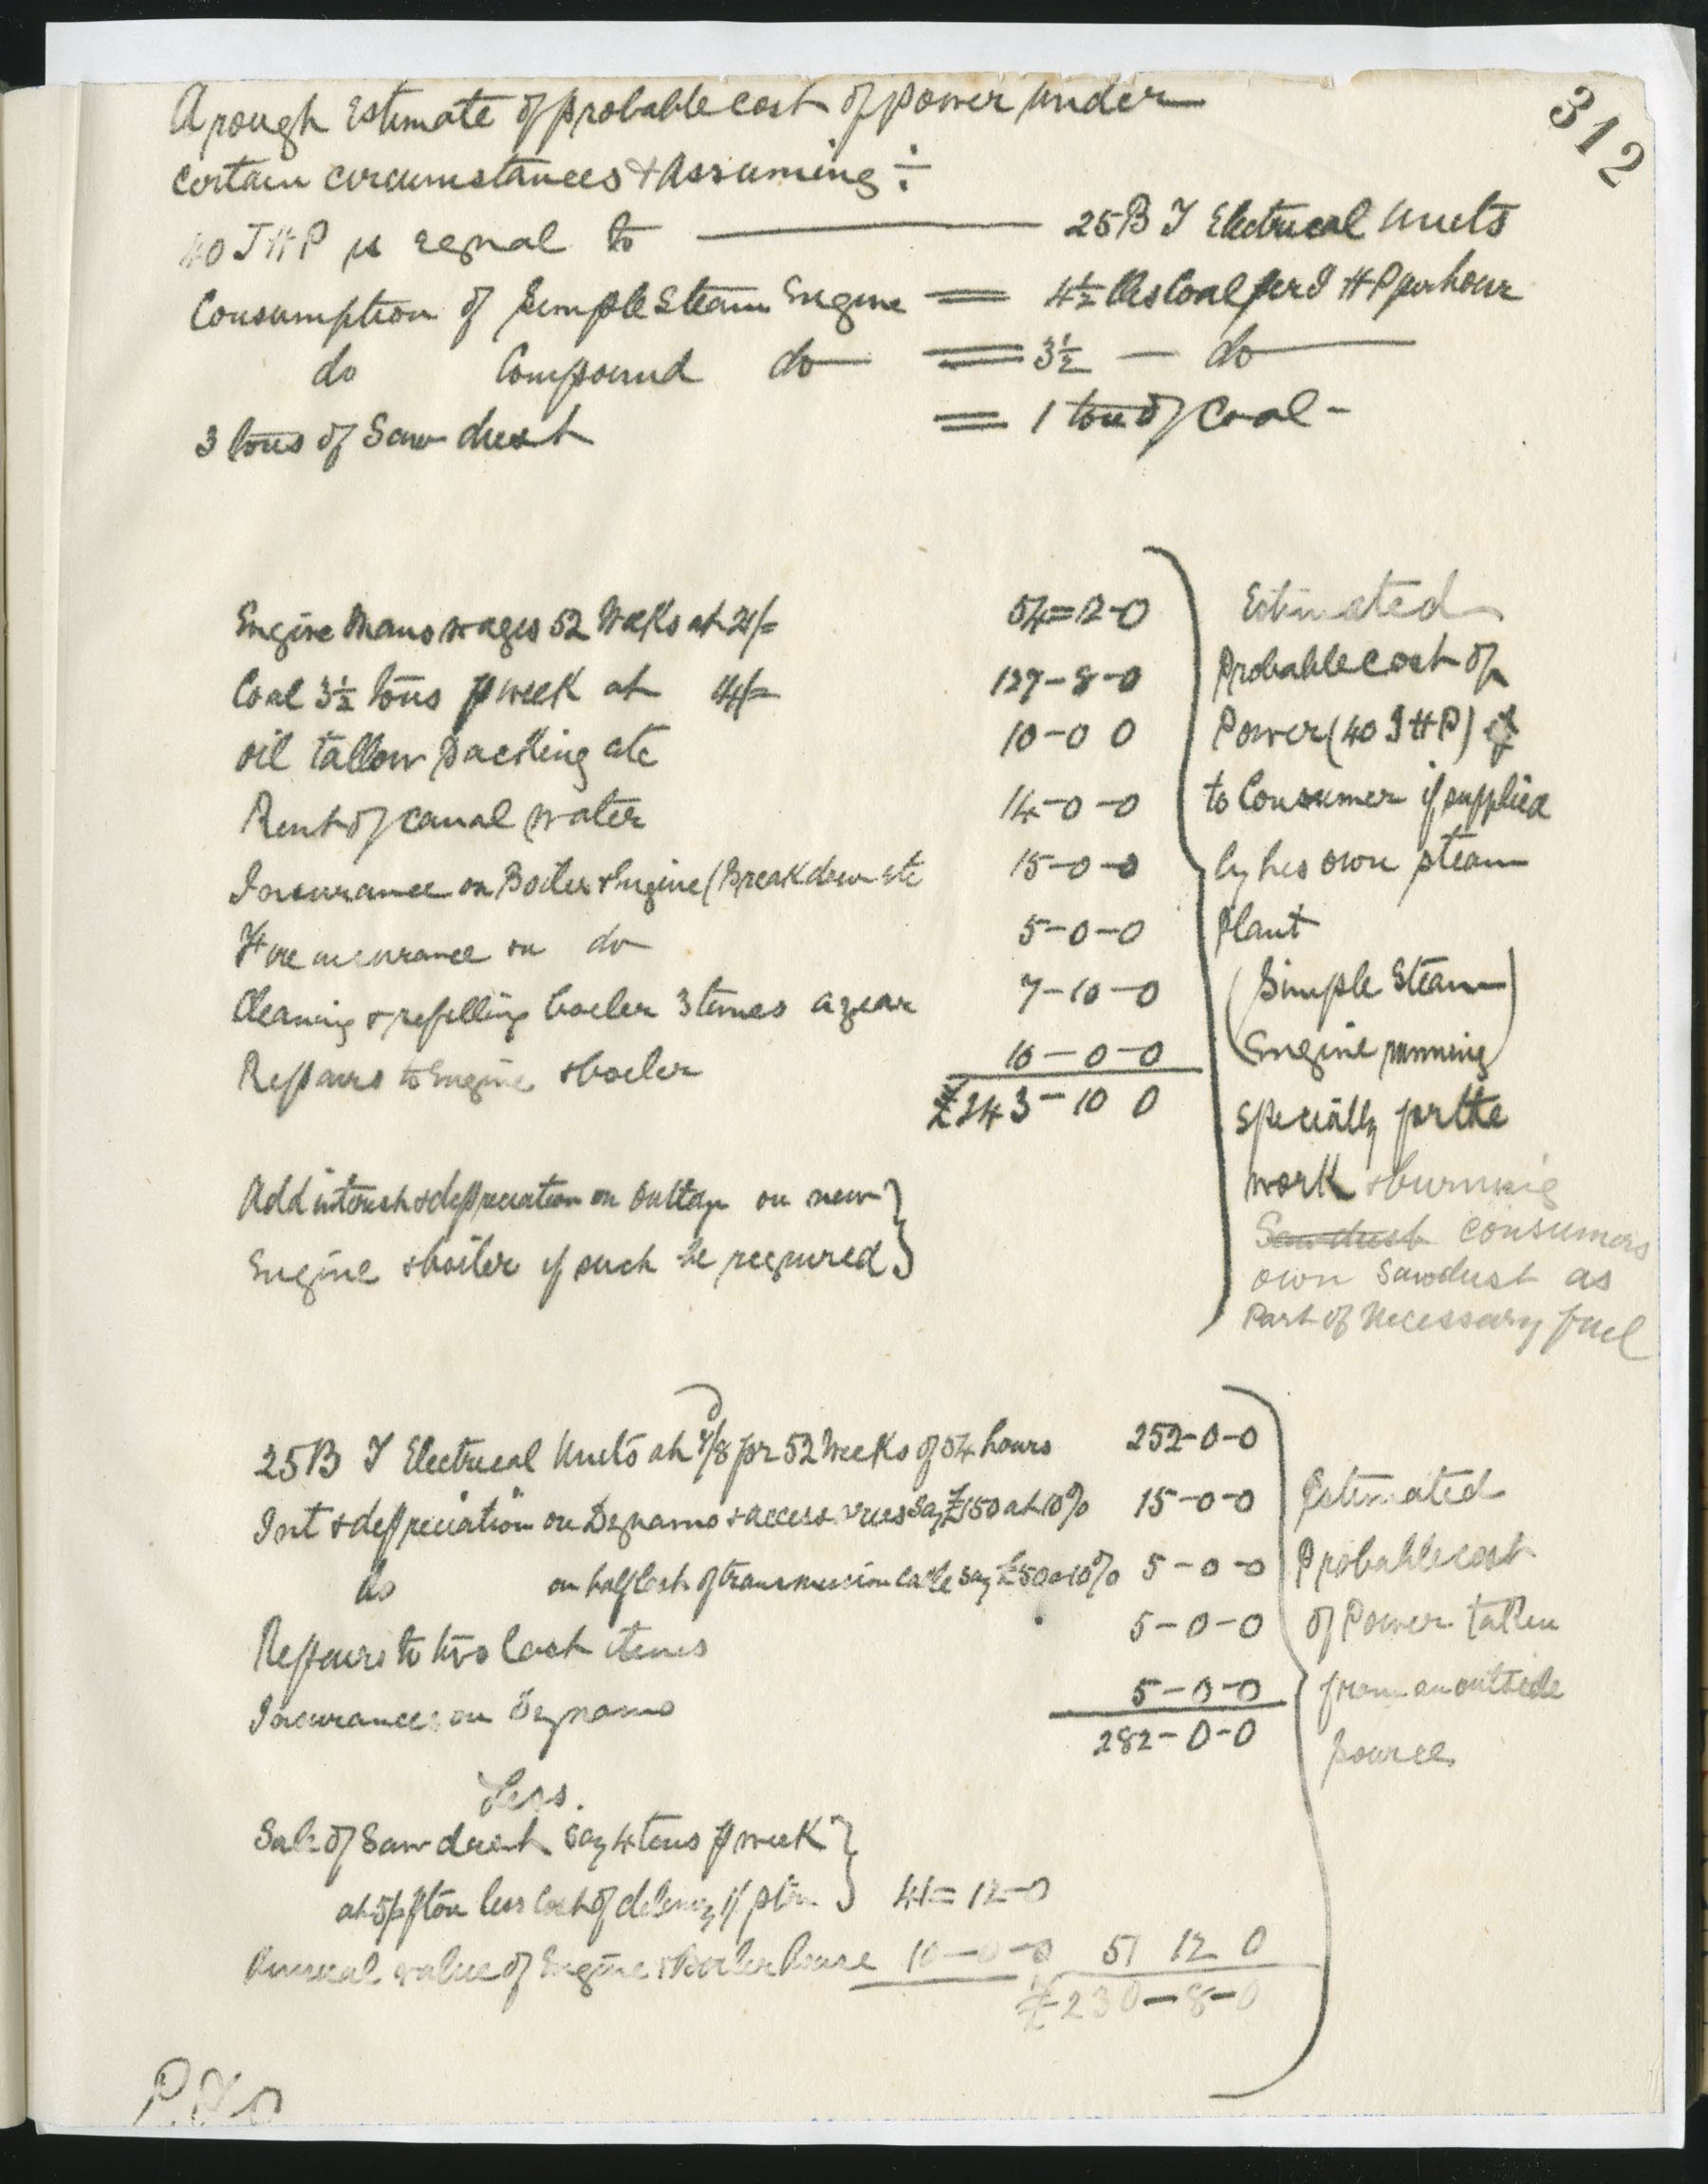 312
A rough Estimate of probable cost of power under
certain circumstances & Assuming ÷
40 I H P is equal to — 25 B T Electrical Units
Consumption of Simple Steam Engine = 4½ lbs Coal per I H P per hour
do Compound do = 3½ — do
3 tons of Saw dust = 1 ton of Coal -
Engine Mans wages 52 Weeks at 21/= 54=12-0
Coal 3½ tons p week at 14/= 127-8-0
Oil tallow packing etc 10-0 0
Rent of canal water 14-0-0
Insurance on Boiler & Engine (Breakdown etc 15-0-0
Fire insurance on do 5-0-0
Cleaning & refilling boiler 3 times a year 7-10-0
Repairs to Engine & boiler 10-0-0
£243-10 0
Add interest & depreciation on outlay on new
Engine & boiler if such be required
Estimated
Probable cost of
Power (40 I H P) if
to Consumer if supplied
by his own steam
Plant
(Simple Steam
Engine running)
specially for the
work & burning
Sawdust consumers
own Sawdust as
Part of Necessary fuel
25 B T Electrical Units at 7/8 for 52 Weeks of 54 hours 252-0-0
Int & depreciation on Dynamo & accessories say £150 at 10% 15-0-0
do on half cost of transmission cable say £50 @ 10% 5-0-0
Repairs to two last items 5-0-0
Insurances on Dynamo 5-0-0
282-0-0
Less.
Sale of Saw dust say 4 tons p week
at 5/ p ton less cost of delivery 1/ p ton 41=12-0
Annual value of Engine & Boiler house 10-0-0 51 12 0
£230-8-0
Estimated
Probable cost
of Power taken
from an outside
source
P.T.O